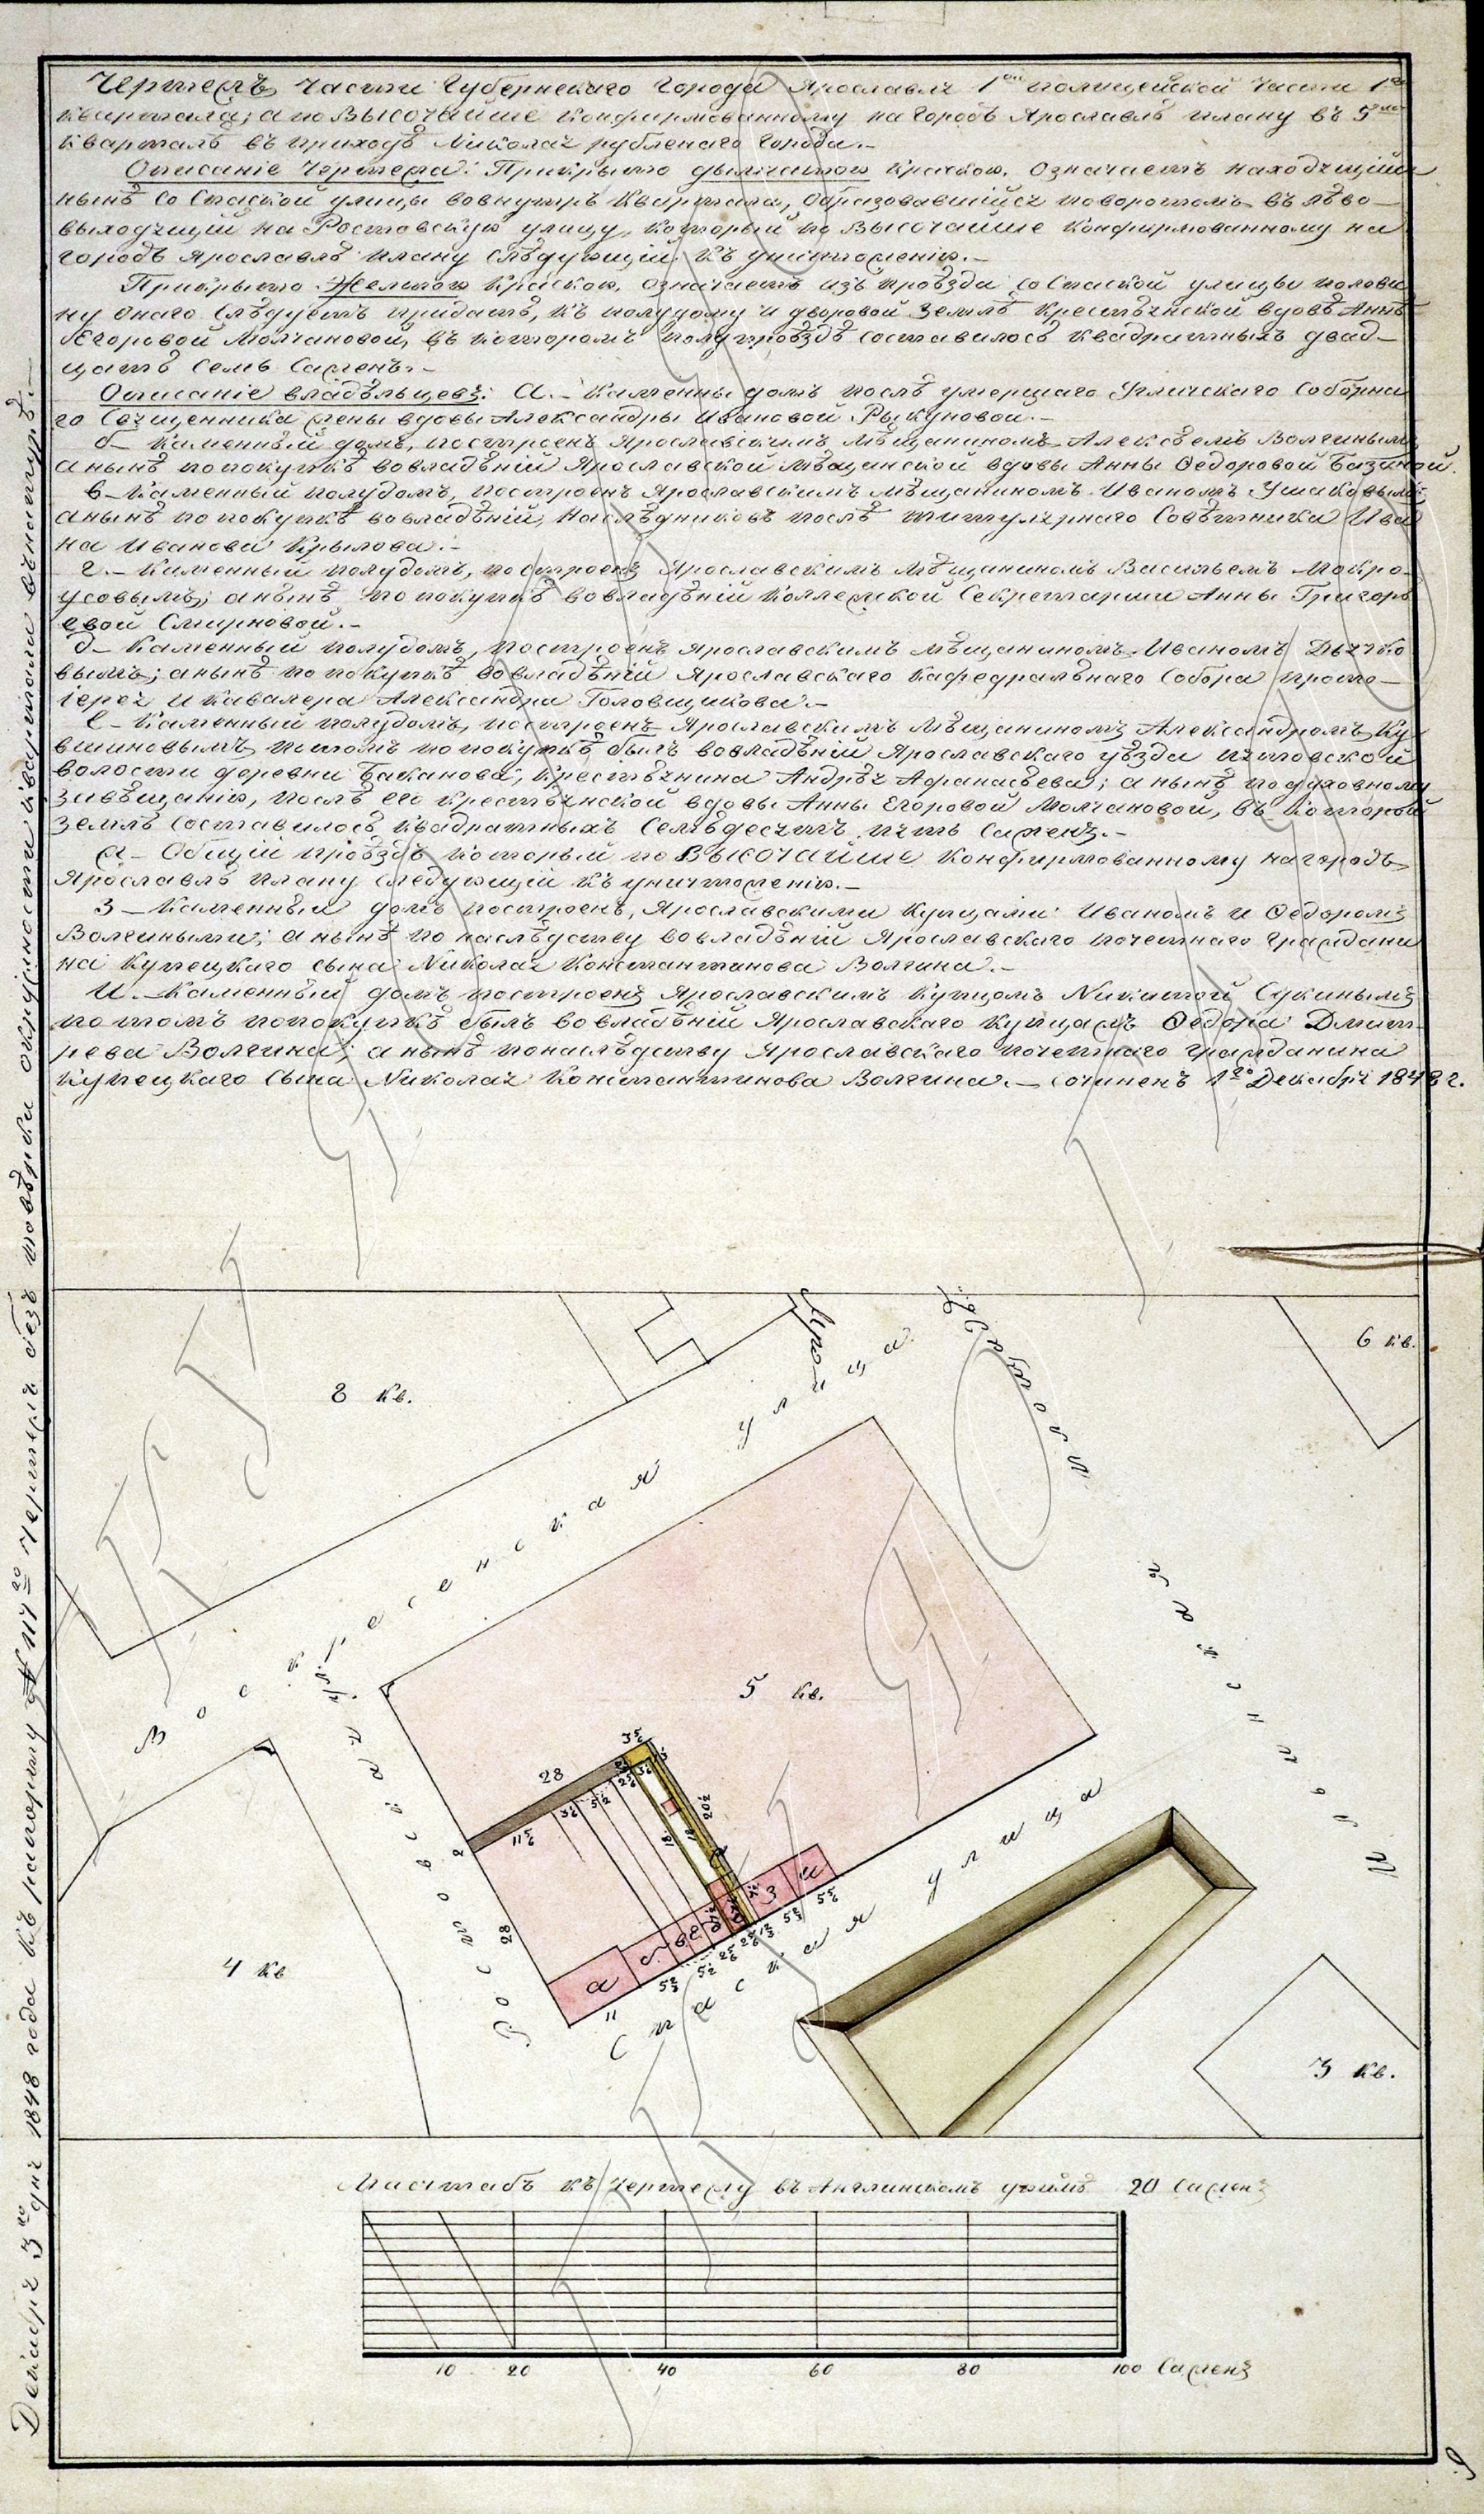 Чертежъ части Губернскаго города Ярославля 1ой полицейской части 1го
квартала; а по Высочайше конфирмованному на городъ Ярославль плану въ 5мъ
кварталѣ въ приходѣ Николая рубленаго города.-
Описаніе Чертежа: Прикрыто дымчатою краскою, означаетъ находящійся
нынѣ со Спаской улицы вовнутрь квартала, образовавшійся поворотомъ въ лѣво
выходящій на Ростовскую улицу, который по Высочайше конфирмованному на
городъ Ярославль плану слѣдующій къ уничтоженію.-
Прикрыто Желтою краскою, означаетъ изъ проѣзда со Спаской улицы полови
ну онаго слѣдуетъ придать, къ полудому и дворовой землѣ крестьянской вдовѣ Аннѣ
Егоровой Молчановой, въ которомъ полупроѣздѣ составилось квадратныхъ двад-
цать семь сажень.-
Описаніе владѣльцевъ: а.- Каменны домъ послѣ умершаго Угличскаго Соборна
го Священника жены вдовы Александры Ивановой Рыкуновой.-
б- Каменный домъ, построенъ Ярославскимъ мѣщаниномъ Алексѣемъ Волгинымъ,
а нынѣ по покупкѣ вовладѣній Ярославской мѣщанской вдовы Анны Федоровой Базиной.
в- Каменный полудомъ, построенъ Ярославскимъ мѣщаниномъ Иваномъ Ушаковымъ
а нынѣ по покупкѣ вовладѣній, наслѣдниковъ послѣ титулярнаго Совѣтника Ива
на Иванова Крылова.-
г.- Каменный полудомъ, построенъ Ярославскимъ мѣщаниномъ Васильемъ Мокро-
усовымъ; а нынѣ по покупкѣ вовладѣній Коллежской Секретарши Анны Григорь
евой Смирновой.-
д- Каменный полудомъ, построенъ Ярославскимъ мѣщаниномъ Иваномъ Дьячко
вымъ; а нынѣ по покупкѣ вовладѣній Ярославскаго кафедральнаго Собора прото-
іерея и кавалера Александра Головщикова.-
е- Каменный полудомъ, построенъ Ярославскимъ мѣщаниномъ Александромъ Ку
вшиновымъ, потомъ по покупкѣ былъ вовладѣніи Ярославскаго уѣзда
волости деревни Баканова, крестьянина Андрея Афанасьева; а нынѣ по духовному
завѣщанію, послѣ его крестьянской вдовы Анны Егоровой Молчановой, въ которой
землѣ составилось квадратныхъ семьдесятъ пять сажень.-
ж- Общій проѣздъ который по Высочайше конфирмованному на городъ
Ярославль плану следующій къ уничтоженію.-
з- Каменный домъ построенъ, Ярославскими купцами Иваномъ и Федоромъ
Волгиными; а нынѣ по наслѣдству вовладѣній Ярославскаго почетнаго гражданина
на купецкаго сына Николая Константинова Волгина.-
и.- Каменный домъ построенъ Ярославскимъ купцомъ Никитой
потомъ по покупкѣ былъ вовладѣній Ярославскаго купца жъ Федора Дмит
рева Волгина; а нынѣ по наслѣдству Ярославскаго почетнаго гражданина
купецкаго сына Николая Константинова Волгина.- Сочиненъ 1го Декабря 1848 г.
Декабря 3го дня 1848 года къ рапорту № 117го чертежъ безъ повѣрки
8 кв.
6 кв.
Воскресенская улица
5 кв.
Ростовская
4 кв
Спаская улица
3 кв.
площадь
28
2
11 5/6
28
20½
а
б
в
г
з
и
11
Масштабъ къ Чертежу въ Англинскомъ дюймѣ 20 сажень
10 20 40 60 80 100 Сажень
9